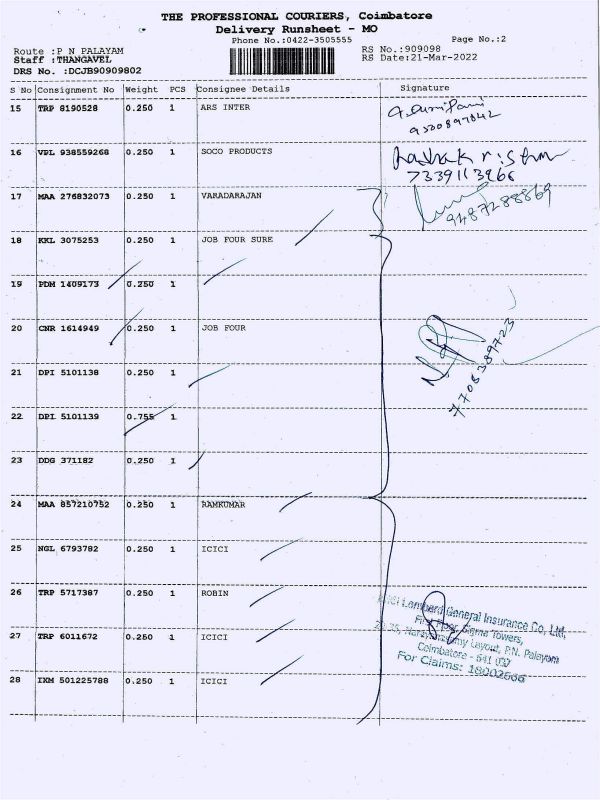 THE PROFESSIONAL COURIERS, Coimbatore
Delivery Runsheet - MO
Phone No.:0422-3505555 Page No.:2
Route :P N PALAYAM RS No.:909098
Staff :THANGAVEL RS Date:21-Mar-2022
DRS No. :DCJB90909802
S No Consignment No Weight PCS Consignee Details Signature
15 TRP 8190528 0.250 1 ARS INTER
16 VPL 938559268 0.250 1 SOCO PRODUCTS
7339113966
17 MAA 276832073 0.250 1 VARADARAJAN
9487288869
18 KKL 3075253 0.250 1 JOB FOUR SURE
19 PDM 1409173 0.250 1
20 CNR 1614949 0.250 1 JOB FOUR
7708389723
21 DPI 5101138 0.250 1
22 DPI 5101139 0.755 1
23 DDG 371182 0.250 1
24 MAA 857210752 0.250 1 RAMKUMAR
25 NGL 6793782 0.250 1 ICICI
26 TRP 5717387 0.250 1 ROBIN
Lombard General Insurance Co. Ltd,
First Floor, Sigma Towers,
27 TRP 6011672 0.250 1 ICICI
Layout, P.N. Palayam
Coimbatore - 641 037
For Claims: 18002666
28 IXM 501225788 0.250 1 ICICI